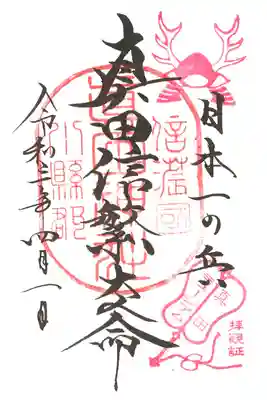 日本一の兵
真田信繁大命
令和三年四月一日
信濃國
小縣郡
拝観証